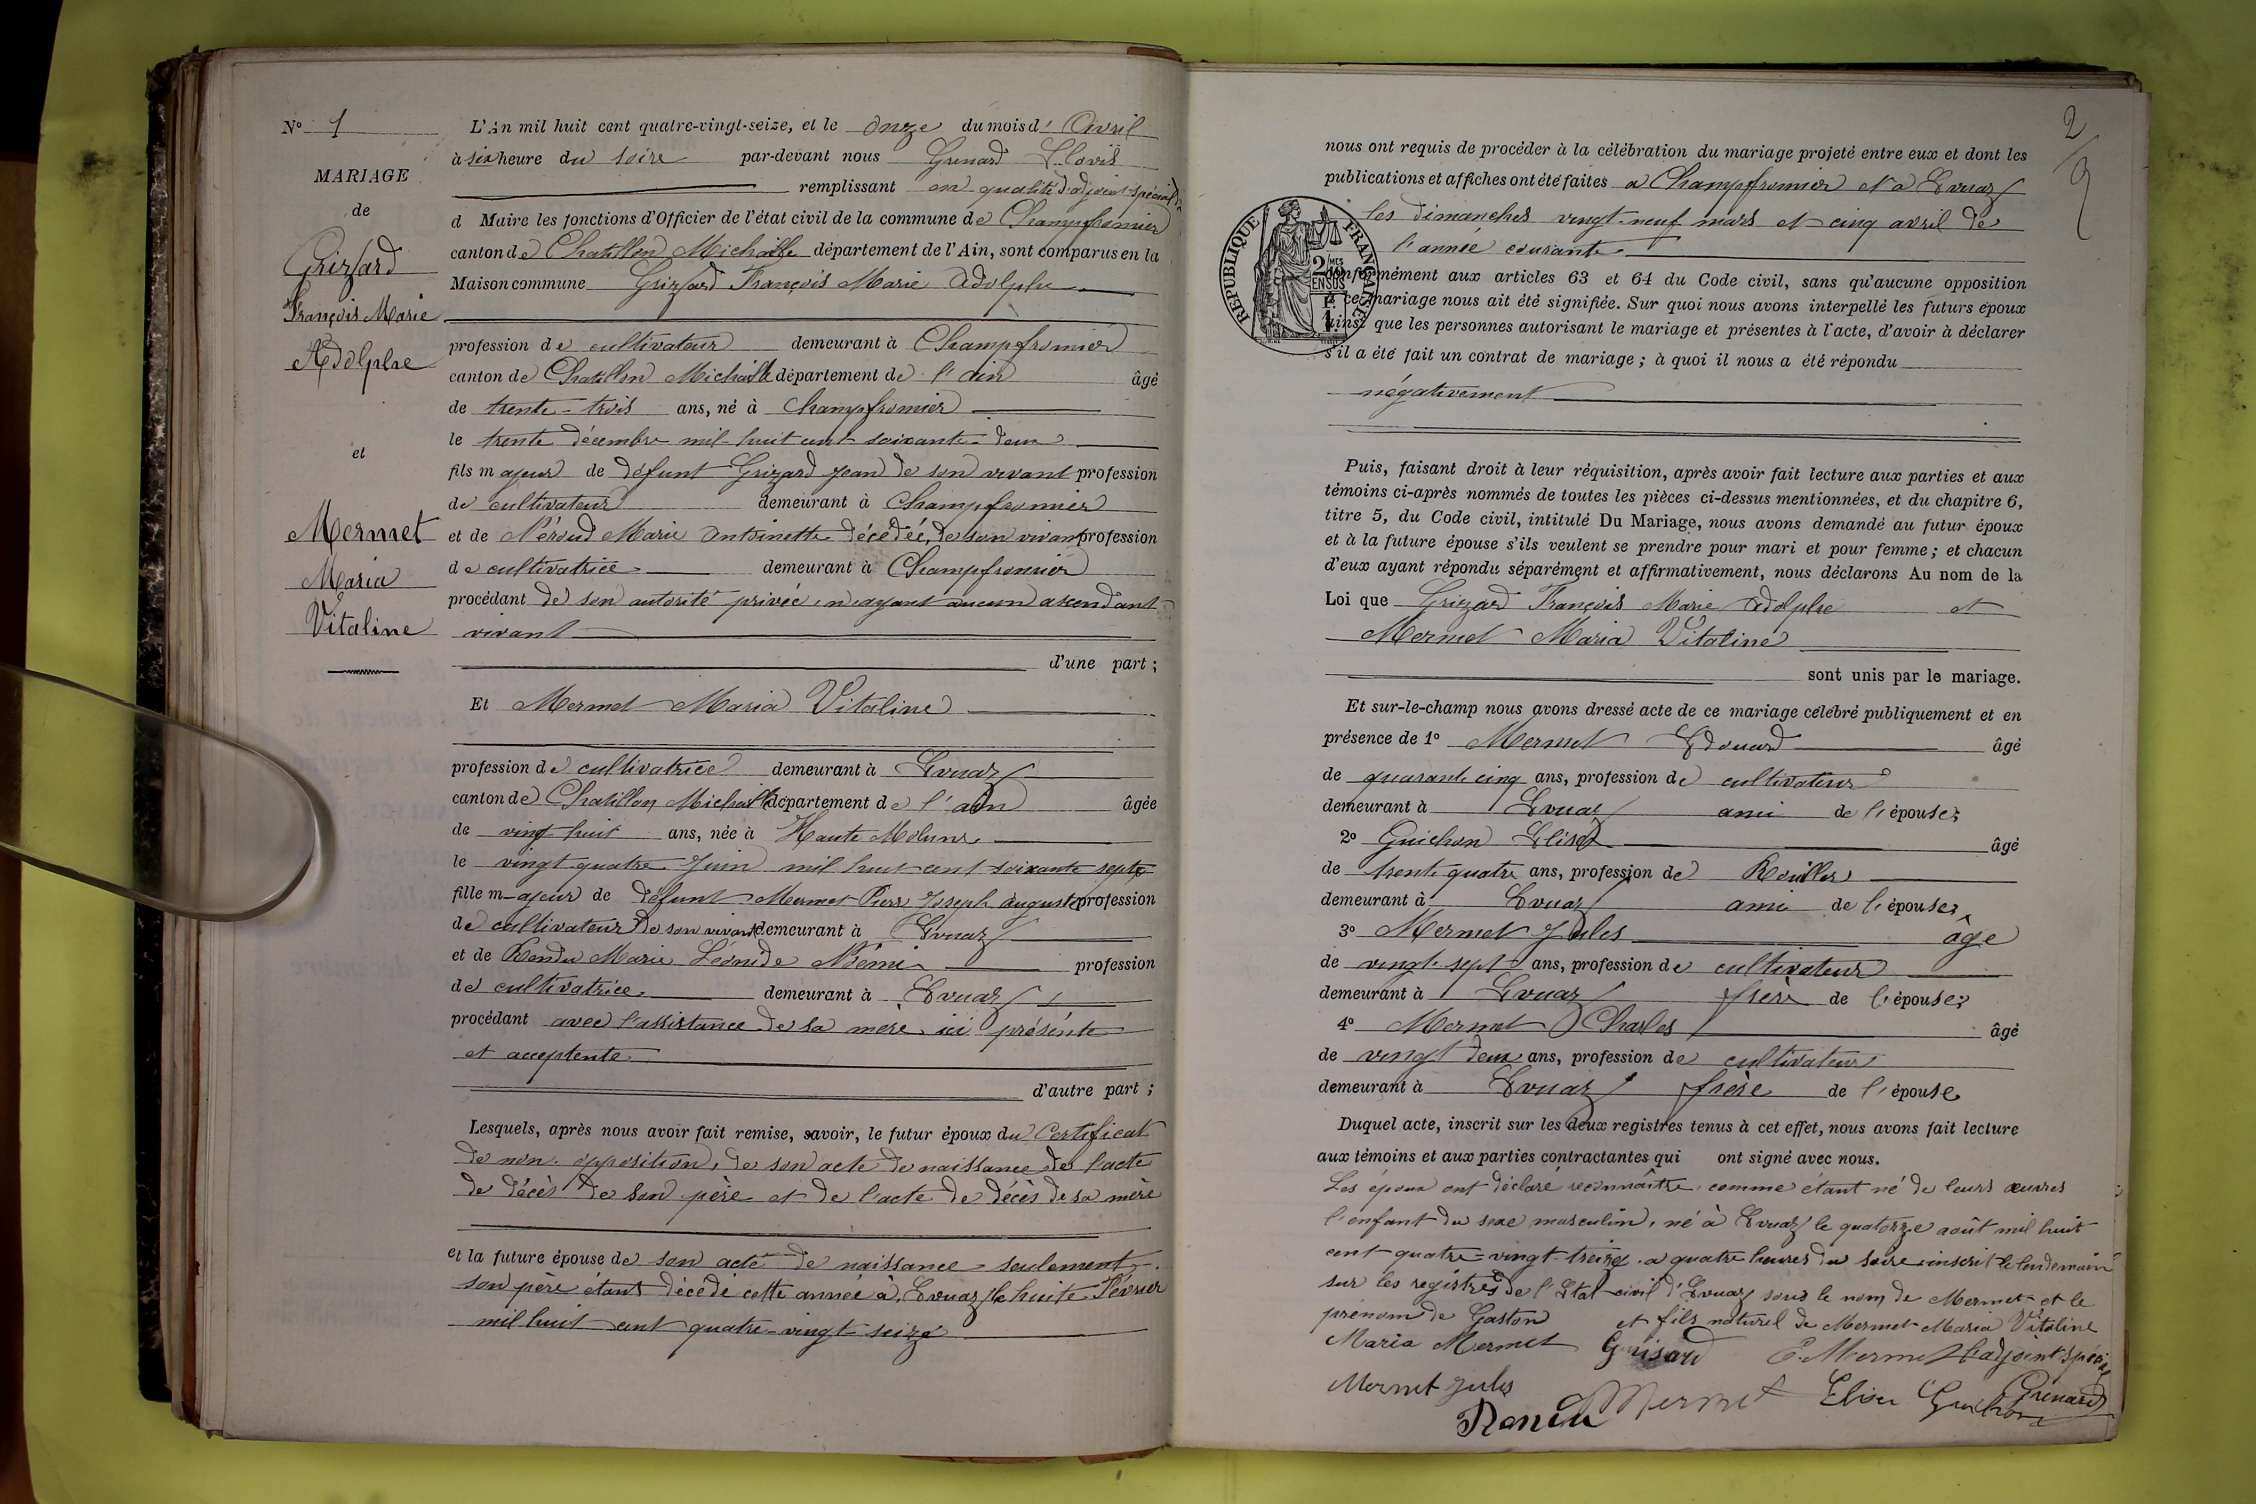 N° 1
MARIAGE
de
Grizard
François Marie
Adolphe
et
Mermet
Maria
Vitaline
L'An mil huit cent quatre-vingt-seize, et le onze du mois d' Avril
à six heure du soire par-devant nous Grenard Clovis
remplissant en qualité d'adjoint spécial
d Maire les fonctions d'Officier de l'état civil de la commune de Champfromier
canton de Chatillon Michaille département de l'Ain, sont comparus en la
Maison commune Grizard François Marie Adolphe
profession de cultivateur demeurant à Champfromier
canton de Chatillon Michaille département de l'ain âgé
de trente-trois ans, né à Champfromier
le trente décembre mil huit cent soixante-deux
fils majeur de défunt Grizard Jean de son vivant profession
de cultivateur demeurant à Champfromier
et de Néroud Marie Antoinette décédée, de son vivant profession
de cultivatrice demeurant à Champfromier
procédant de son autorité privée, n'ayant aucun ascendant
vivant
d'une part ;
Et Mermet Maria Vitaline
profession de cultivatrice demeurant à Evuaz
canton de Chatillon Michaille département de l'ain âgée
de vingt huit ans, née à Haute Molune
le vingt quatre Juin mil huit cent soixante sept
fille majeur de défunt Mermet Pierre Joseph auguste profession
de cultivateur de son vivant demeurant à Evuaz
et de Rendu Marie Léonide Rémi profession
de cultivatrice demeurant à Evuaz
procédant avec l'assistance de sa mère, ici présente
et acceptente
d'autre part ;
Lesquels, après nous avoir fait remise, savoir, le futur époux du Certificat
de non opposition, de son acte de naissance de l'acte
de décès de son père et de l'acte de décès de sa mère
et la future épouse de son acte de naissance seulement
son père étant décédé cette année à Evuaz le huite Février
mil huit cent quatre-vingt seize
2
nous ont requis de procéder à la célébration du mariage projeté entre eux et dont les
publications et affiches ont été faites a Champfromier et a Evuaz
les dimanches vingt-neuf mars et cinq avril de
l'année courante
RÉPUBLIQUE FRANÇAISE
conformément aux articles 63 et 64 du Code civil, sans qu'aucune opposition
à ce mariage nous ait été signifiée. Sur quoi nous avons interpellé les futurs époux
ainsi que les personnes autorisant le mariage et présentes à l'acte, d'avoir à déclarer
s'il a été fait un contrat de mariage ; à quoi il nous a été répondu
négativement
Puis, faisant droit à leur réquisition, après avoir fait lecture aux parties et aux
témoins ci-après nommés de toutes les pièces ci-dessus mentionnées, et du chapitre 6,
titre 5, du Code civil, intitulé Du Mariage, nous avons demandé au futur époux
et à la future épouse s'ils veulent se prendre pour mari et pour femme ; et chacun
d'eux ayant répondu séparément et affirmativement, nous déclarons Au nom de la
Loi que Grizard François Marie Adolphe et
Mermet Maria Vitaline
sont unis par le mariage.
Et sur-le-champ nous avons dressé acte de ce mariage célébré publiquement et en
présence de 1° Mermet Edouard âgé
de quarante cinq ans, profession de cultivateur
demeurant à Evuaz ami de l'épouse;
2° Guichon Elisé âgé
de trente quatre ans, profession de
demeurant à Evuaz ami de l'épouse;
3° Mermet Jules âge
de vingt-sept ans, profession de cultivateur
demeurant à Evuaz frère de l'épouse;
4° Mermet Charles âgé
de vingt deux ans, profession de cultivateur
demeurant à Evuaz frère de l'épouse
Duquel acte, inscrit sur les deux registres tenus à cet effet, nous avons fait lecture
aux témoins et aux parties contractantes qui ont signé avec nous.
Les époux ont déclaré reconnaître comme étant né de leurs œuvres
l'enfant du sexe masculin, né à Evuaz le quatorze août mil huit
cent quatre-vingt-treize, a quatre heures du soire inscrit le lendemain
sur les registres de l'Etat-civil d'Evuaz sous le nom de Mermet et le
prénom de Gaston et fils naturel de Mermet Maria Vitaline
Maria Mermet Grisard E. Mermet L'adjoint spécial
Mermet Jules Grenard
Rendu Mermet Elisé Guichon